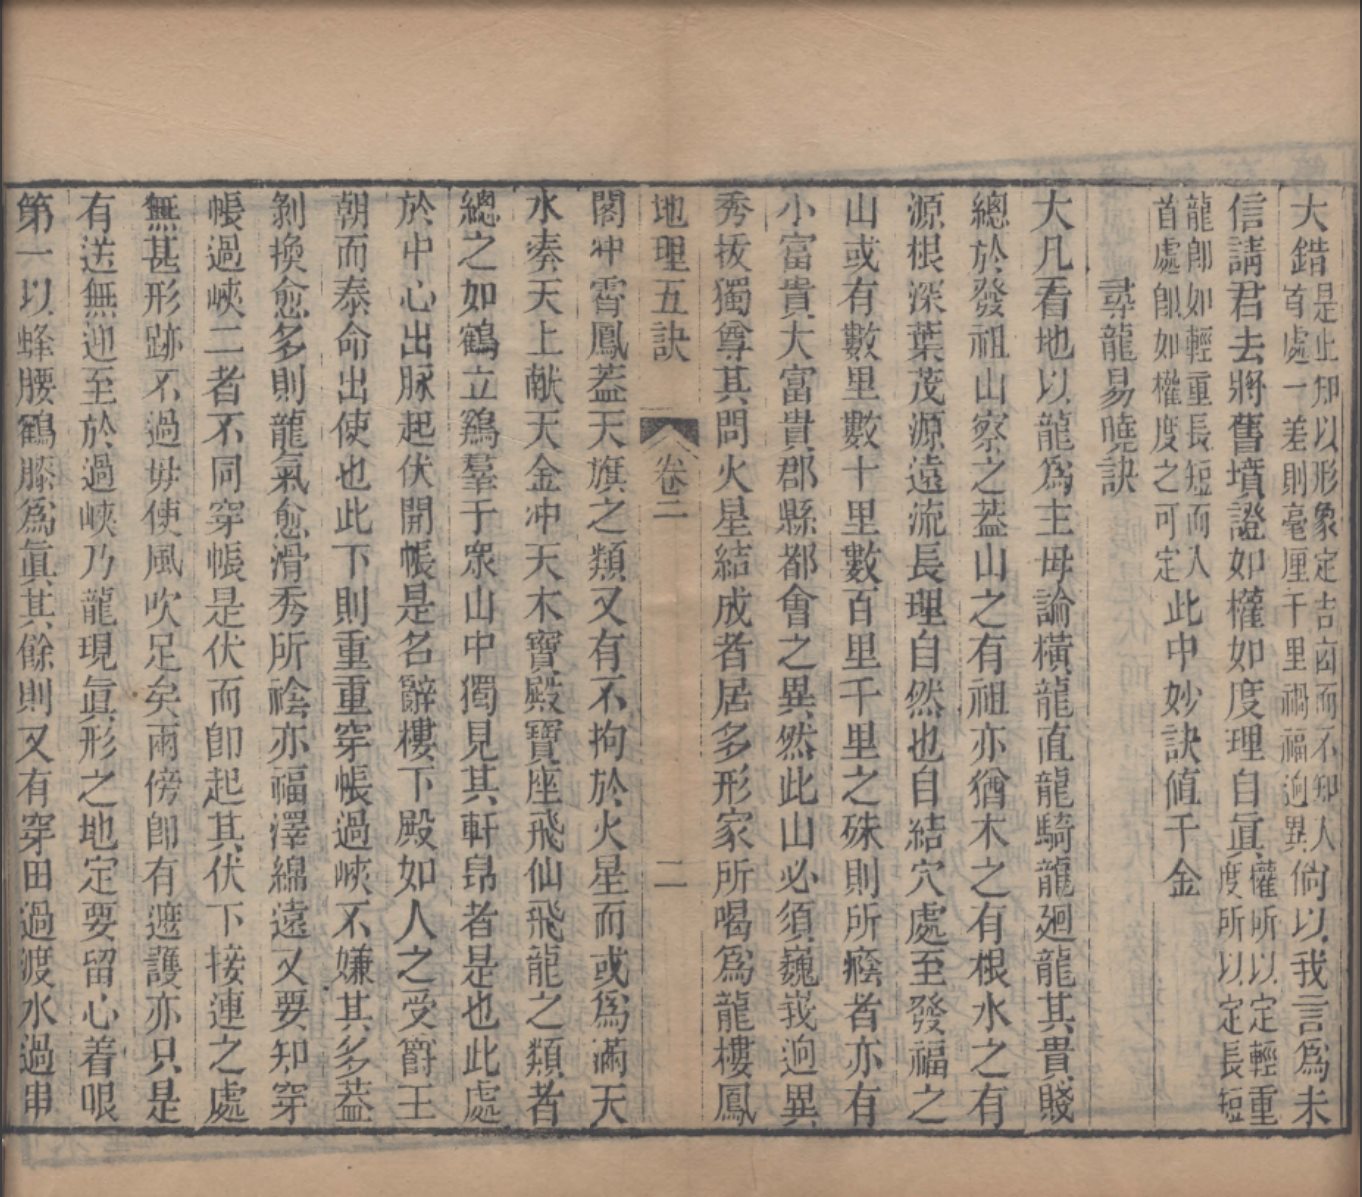 大錯是止知以形象定吉凶而不知人首處一差則毫厘千里禍福迥異倘以我言爲未
信請君去將舊墳證如權如度理自眞權所以定輕重度所以定長短
龍卽如輕重長短而人首處卽如權度之可定此中妙訣値千金
尋龍易曉訣
大凡看地以龍爲主毋論橫龍直龍騎龍廻龍其貴賤
總於發祖山察之葢山之有祖亦猶木之有根水之有
源根深葉茂源遠流長理自然也自結穴處至發福之
山或有數里數十里數百里千里之殊則所癊者亦有
小富貴大富貴郡縣都會之異然此山必須巍峩迥異
秀拔獨尊其問火星結成者居多形家所喝爲龍樓鳳
地理五訣 卷二 二
閣冲霄鳳葢天旗之類又有不拘於火星而或爲滿天
水奏天上献天金冲天木寶殿寶座飛仙飛龍之類者
總之如鶴立鷄羣于衆山中獨見其軒昂者是也此處
於中心出脉起伏開帳是名辭樓下殿如人之受爵王
朝而泰命出使也此下則重重穿帳過峽不嫌其多葢
剝換愈多則龍氣愈滑秀所裣亦福澤綿遠又要知穿
帳過峽二者不同穿帳是伏而卽起其伏下接連之處
無甚形跡不過毋使風吹足矣兩傍卽有遮護亦只是
有送無迎至於過峽乃龍現眞形之地定要留心着眼
第一以蜂腰鶴膝爲眞其餘則又有穿田過渡水過串